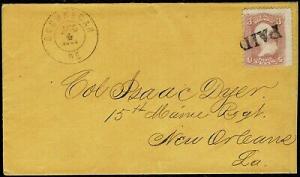 PAID
Col Isaac Dyer
15th Maine Regt.
New Orleans
La.